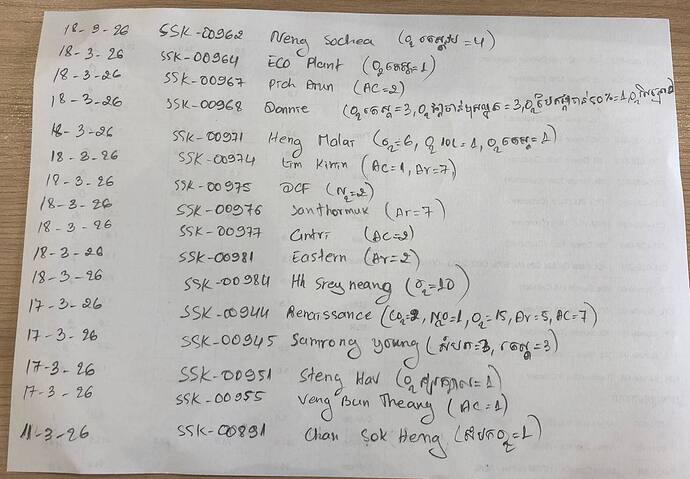 18-3-26 SSK-00962 Neng Sochea (O₂ = 4)
18-3-26 SSK-00964 ECO Plant (O₂ = 1)
18-3-26 SSK-00967 Pich Arun (AC = 2)
18-3-26 SSK-00968 Dannie (O₂ = 3, O₂ = 3, O₂ 50% = 1, O₂
18-3-26 SSK-00971 Heng Malai (O₂ = 6, O₂ 10L = 1, O₂ = 1)
18-3-26 SSK-00974 Lim Kirin (AC = 1, Ar = 7)
18-3-26 SSK-00975 DCF (N₂ = 2)
18-3-26 SSK-00976 Santhormuk (Ar = 7)
18-3-26 SSK-00977 Cintri (AC = 2)
18-3-26 SSK-00981 Eastern (Ar = 2)
18-3-26 SSK-00984 Hh Sreyneang (O₂ = 10)
17-3-26 SSK-00944 Renaissance (CO₂ = 2, N₂O = 1, O₂ = 15, Ar = 5, AC = 7)
17-3-26 SSK-00945 Samrong Young (សំបក = 3, = 3)
17-3-26 SSK-00951 Steng Hav (O₂ = 1)
17-3-26 SSK-00955 Veng Bun Theang (AC = 1)
11-3-26 SSK-00891 Chan Sok Heng (សំបក O₂ = 1)